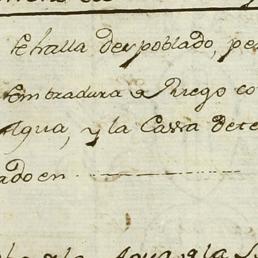 se halla despoblado, pe
embradura e Riego co
Agua, y la Cassa dete
ado en
Agua, e la